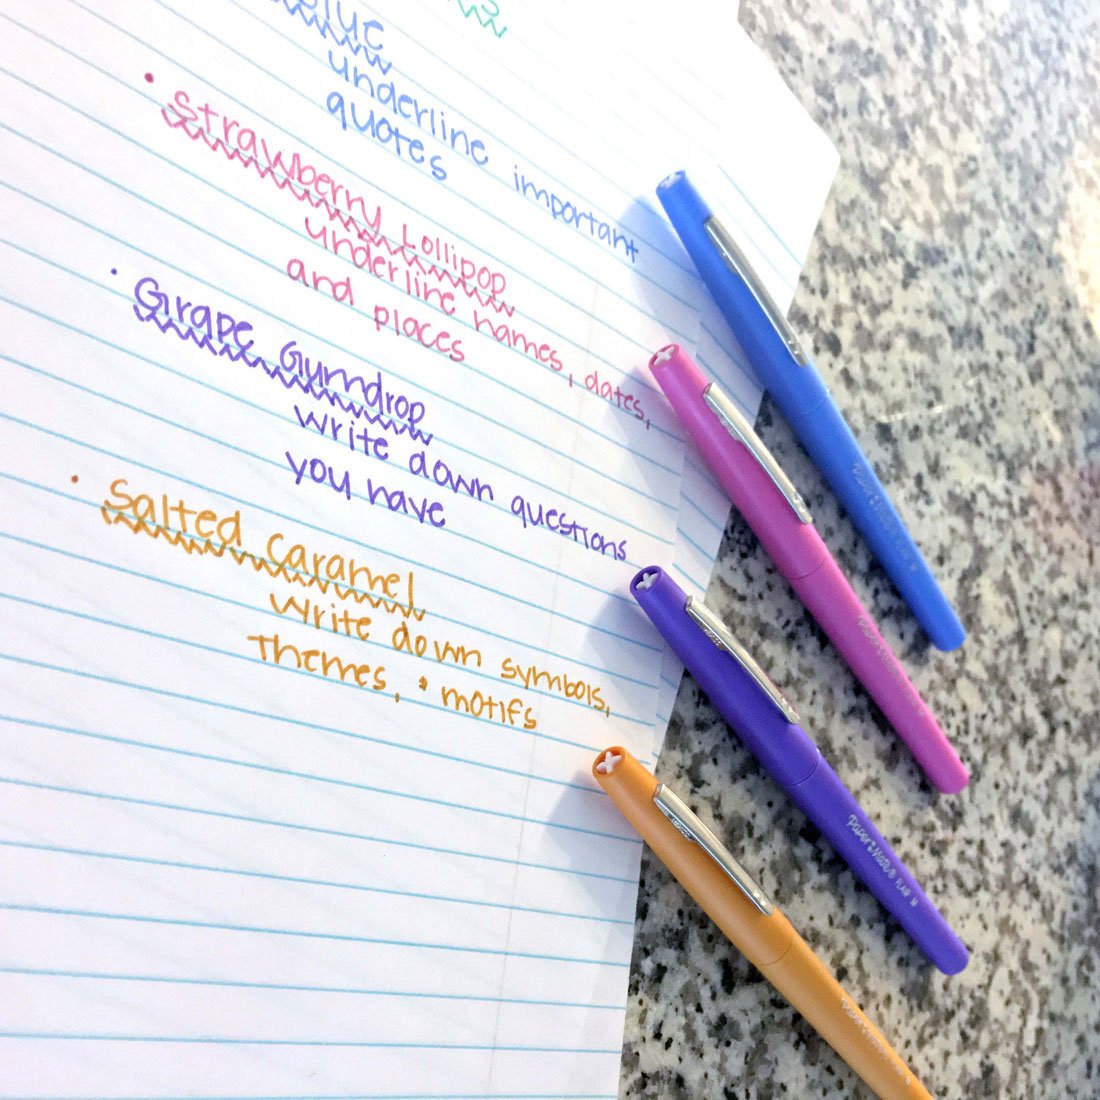 underline important
quotes
• Strawberry Lollipop
underline names, dates,
and places
• Grape Gumdrop
write down questions
you have
• Salted Caramel
write down symbols,
themes, & motifs
Paper:Mate FLAIR M